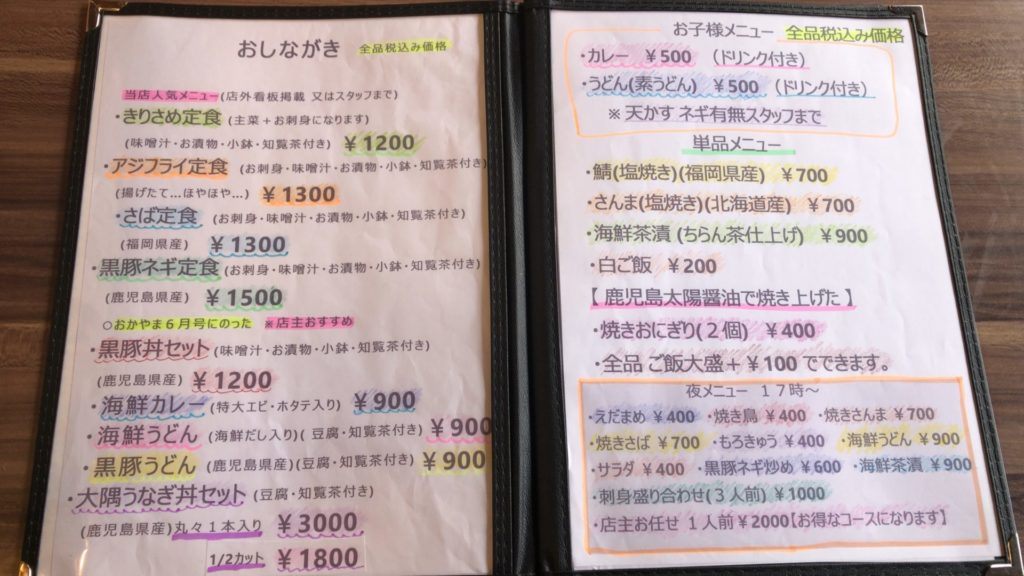 おしながき 全品税込み価格
当店人気メニュー(店外看板掲載 又はスタッフまで)
・きりさめ定食 (主菜+お刺身になります)
(味噌汁・お漬物・小鉢・知覧茶付き) ¥1200
・アジフライ定食 (お刺身・味噌汁・お漬物・小鉢・知覧茶付き)
(揚げたて…ほやほや…) ¥1300
・さば定食 (お刺身・味噌汁・お漬物・小鉢・知覧茶付き)
(福岡県産) ¥1300
・黒豚ネギ定食 (お刺身・味噌汁・お漬物・小鉢・知覧茶付き)
(鹿児島県産) ¥1500
○おかやま6月号にのった ※店主おすすめ
・黒豚丼セット (味噌汁・お漬物・小鉢・知覧茶付き)
(鹿児島県産) ¥1200
・海鮮カレー (特大エビ・ホタテ入り) ¥900
・海鮮うどん (海鮮だし入り)(豆腐・知覧茶付き) ¥900
・黒豚うどん (鹿児島県産)(豆腐・知覧茶付き) ¥900
・大隅うなぎ丼セット (豆腐・知覧茶付き)
(鹿児島県産) 丸々1本入り ¥3000
1/2カット ¥1800
お子様メニュー 全品税込み価格
・カレー ¥500 (ドリンク付き)
・うどん(素うどん) ¥500 (ドリンク付き)
※天かす ネギ有無スタッフまで
単品メニュー
・鯖(塩焼き)(福岡県産) ¥700
・さんま(塩焼き)(北海道産) ¥700
・海鮮茶漬 (ちらん茶仕上げ) ¥900
・白ご飯 ¥200
【 鹿児島太陽醤油で焼き上げた 】
・焼きおにぎり(2個) ¥400
・全品 ご飯大盛+¥100 でできます。
夜メニュー 17時～
・えだまめ ¥400 ・焼き鳥 ¥400 ・焼きさんま ¥700
・焼きさば ¥700 ・もろきゅう ¥400 ・海鮮うどん ¥900
・サラダ ¥400 ・黒豚ネギ炒め ¥600 ・海鮮茶漬 ¥900
・刺身盛り合わせ(3人前) ¥1000
・店主お任せ 1人前¥2000【お得なコースになります】